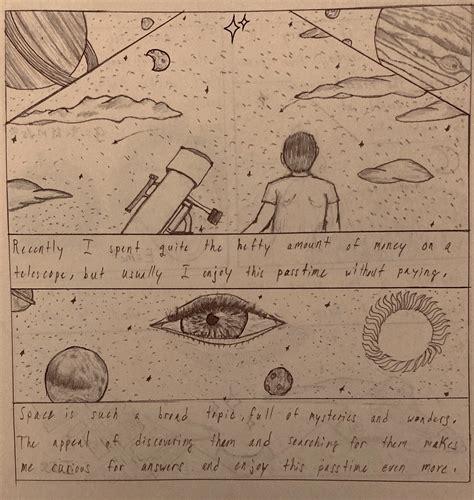 Recently I spent quite the hefty amount of money on a
telescope, but usually I enjoy this passtime without paying.
Space is such a broad topic, full of mysteries and wonders.
The appeal of discovering them and searching for them makes
me curious for answers and enjoy this passtime even more.